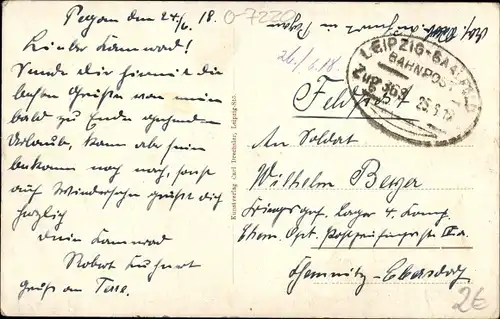 Pegau den 24/6. 18.
0-7220
Lieber Kamerad!
Sende dir hiermit die
besten Grüße von mein
bald zu Ende gehenden
Urlaub, kann aber sein
bekomm noch nach, sonst
auf Wiedersehn grüßt dich
herzlich
dein Kamerad
Robert Kuhnert
Gruß an
Kunstverlag Carl Bretfelder, Leipzig-Stö.
in Pegau
26./6.18.
LEIPZIG-SAALFELD
BAHNPOST
Zug 369
25.6.18
Feldpost
An Soldat
Wilhelm Berger
Kriegsgef. Lager 4. Komp.
Chemnitz-Ebersdorf
2€